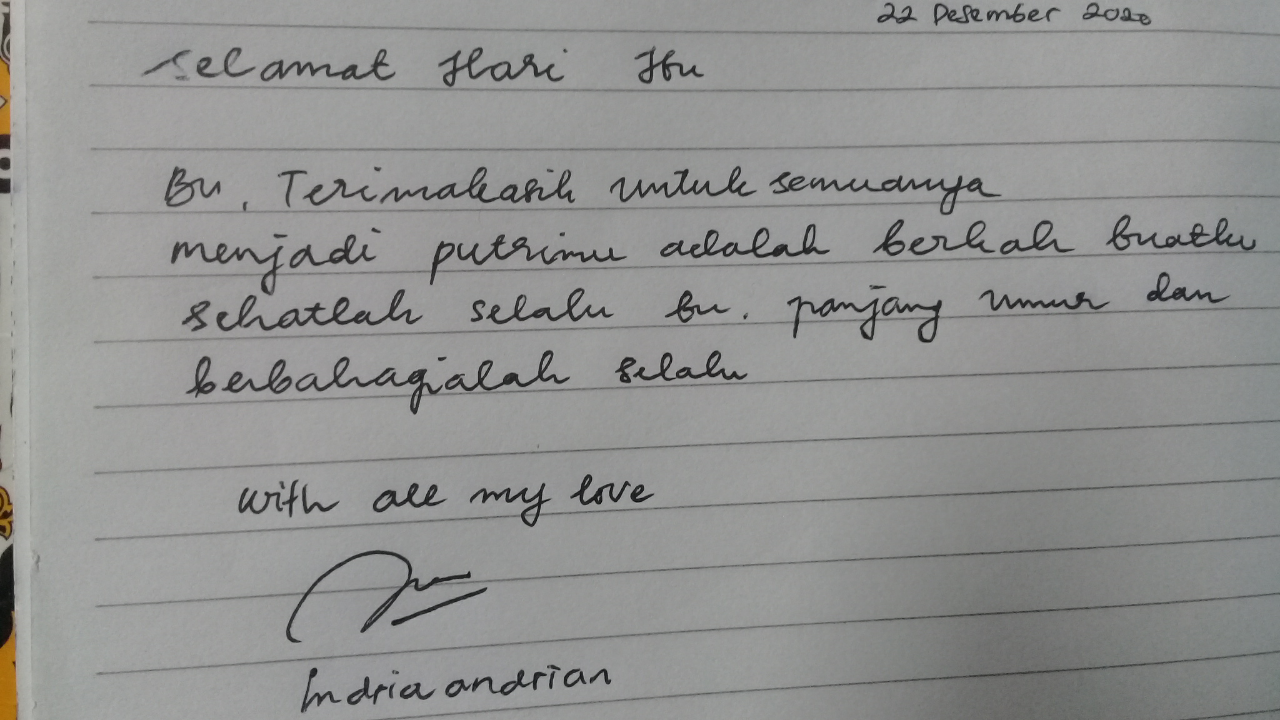 22 Desember 2020
Selamat Hari Ibu
Bu, Terimakasih untuk semuanya
menjadi putrimu adalah berkah buatku
sehatlah selalu bu. panjang umur dan
berbahagialah selalu
with all my love
Indria andrian